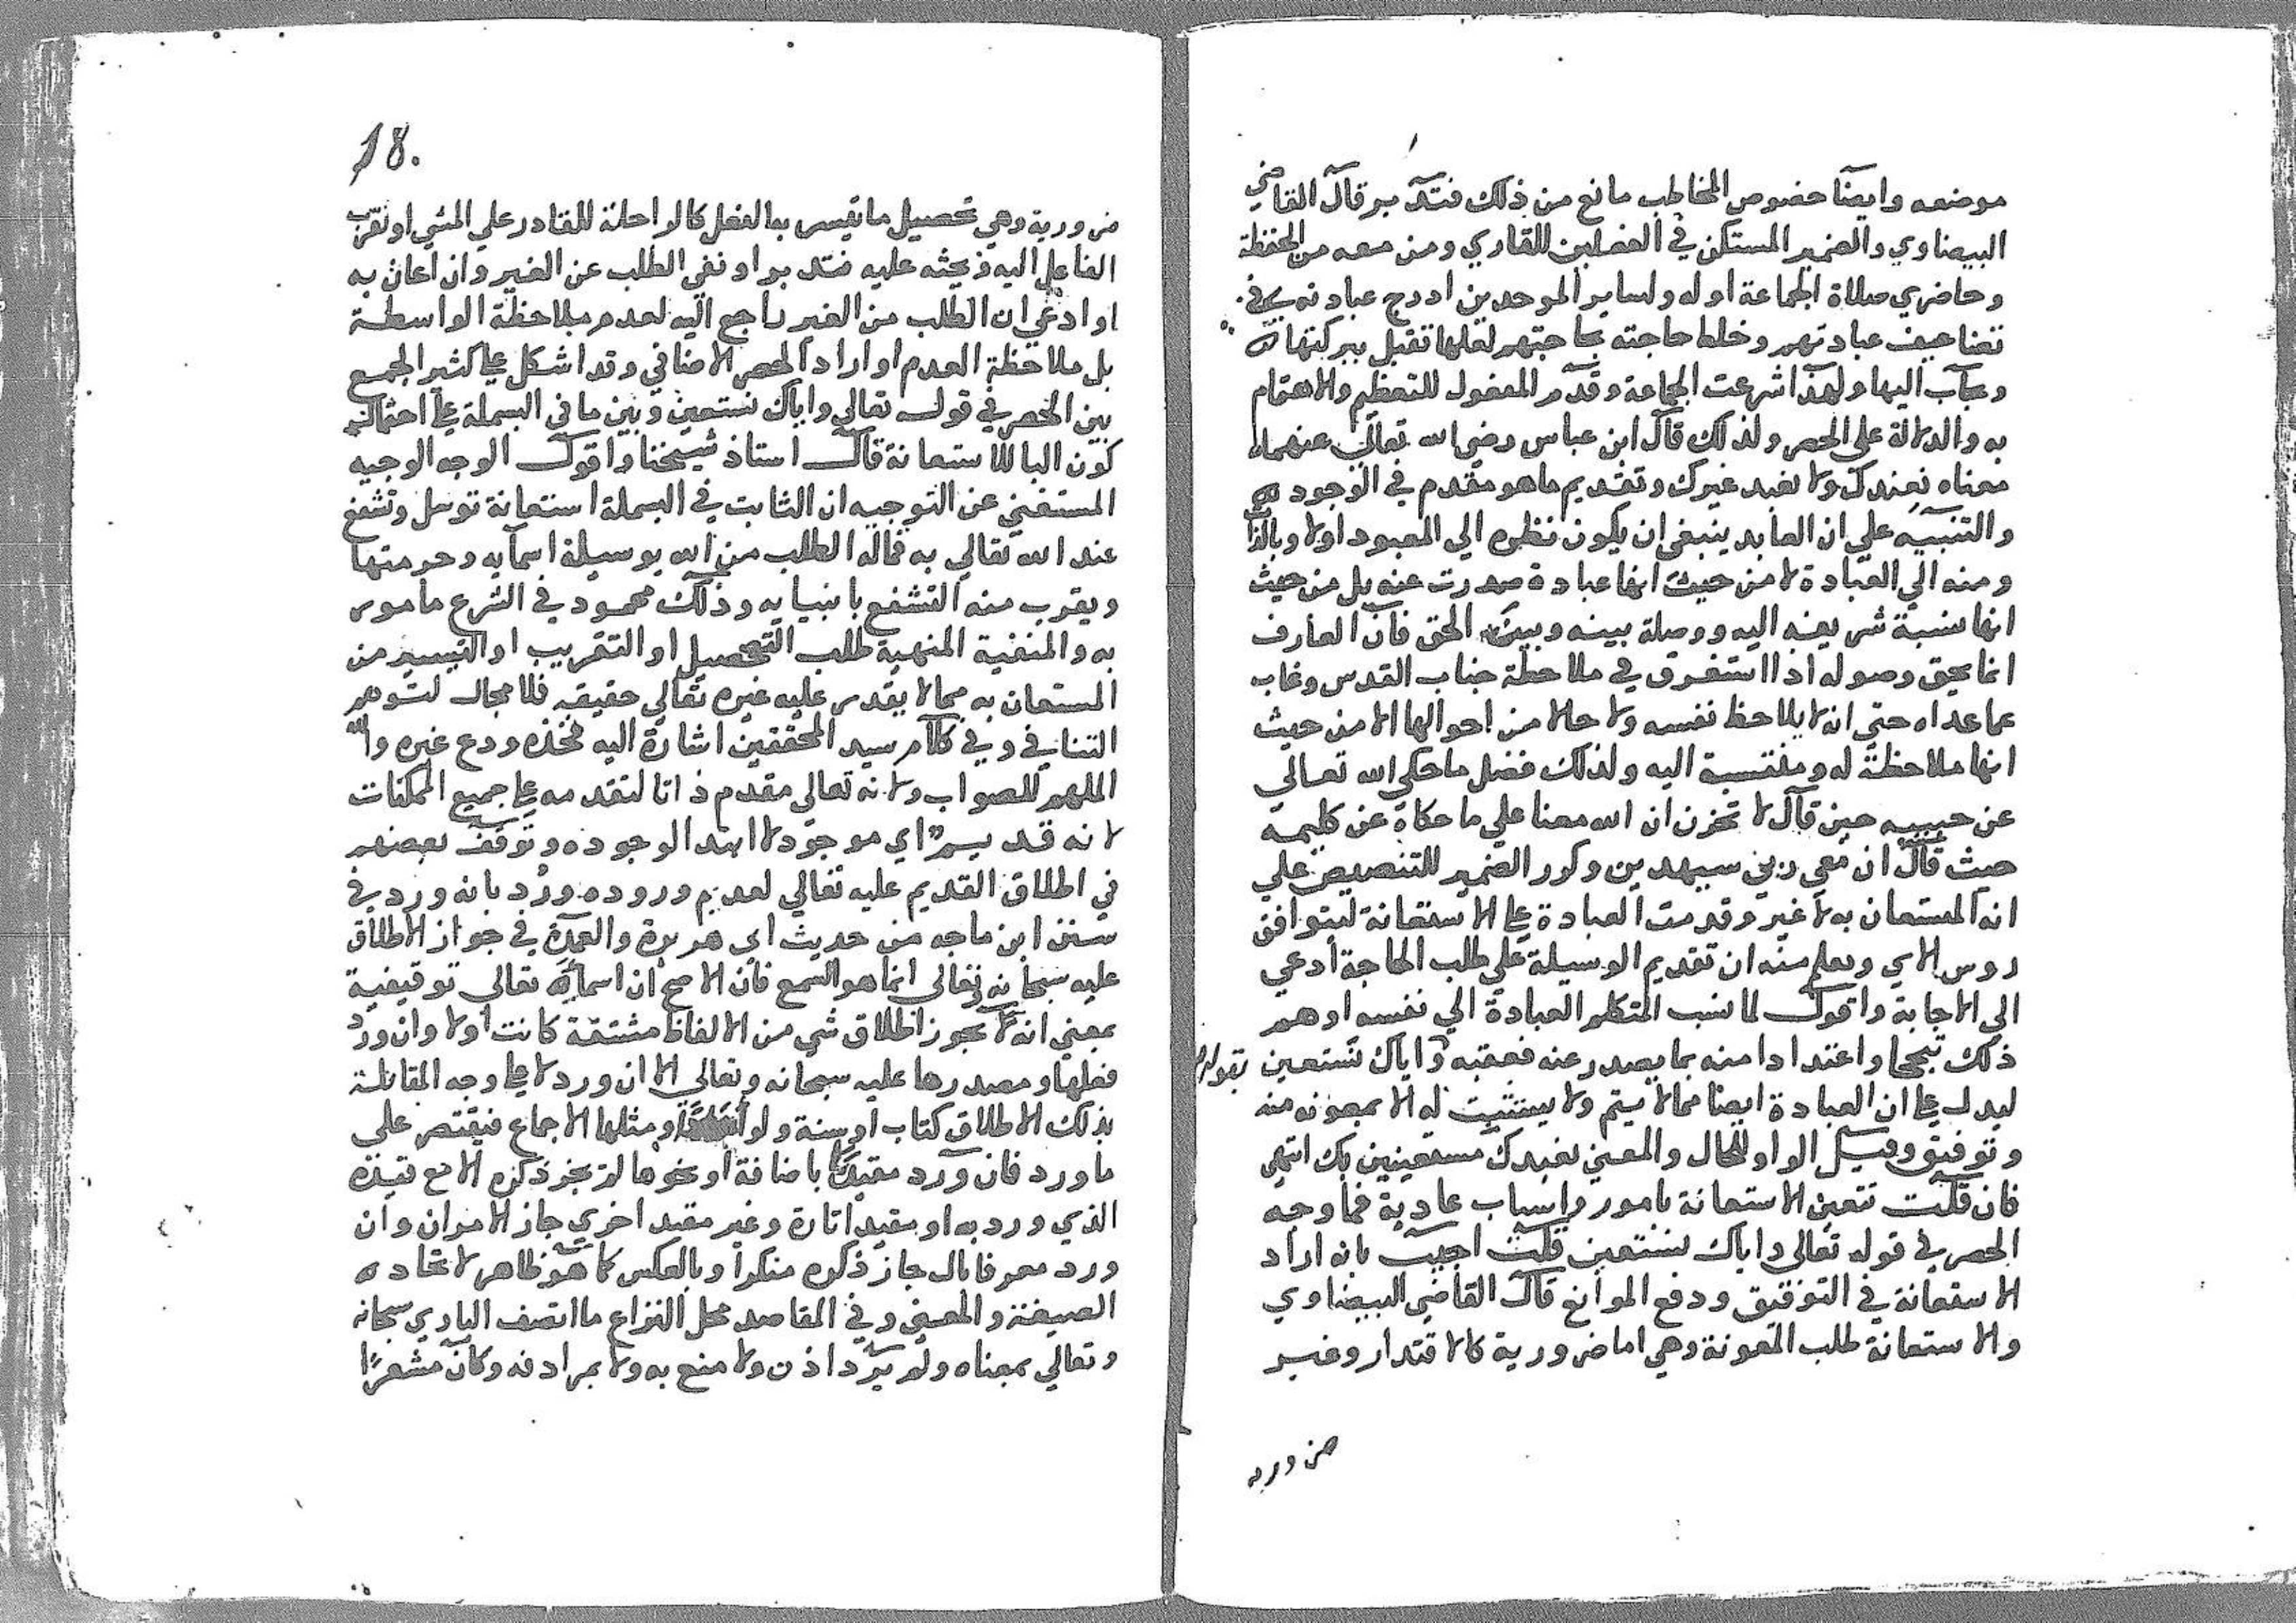 موضعه وايضا خصوص المخاطب مانع من ذلك فتدبر قال القاضي
البيضاوي والضمير المستكن في الفعلين للقاري ومن معه من الحفظة
وحاضري صلاة الجماعة اوله ولساير الموحدين ادرج عبادته في
تضاعيف عبادتهم وخلط حاجته بحاجتهم لعلها تقبل ببركتها
ويجاب اليها ولهذا شرعت الجماعة وقدم المفعول للتعظيم والاهتمام
به والدلالة على الحصر ولذلك قال ابن عباس رضي الله تعالى عنهما
معناه نعبدك ولا نعبد غيرك وتقديم ما هو مقدم في الوجود
والتنبيه علي ان العابد ينبغي ان يكون نظره الي المعبود اولا وبالذات
ومنه الي العبادة لا من حيث انها عبادة صدرت عنه بل من حيث
انها نسبة شريفة اليه ووصلة بينه وبين الحق فان العارف
انما يحق وصوله اذا استغرق في ملاحظة جناب القدس وغاب
عما عداه حتى انه لا يلاحظ نفسه ولا حالا من احوالها الا من حيث
انها ملاحظة له ومنتسبة اليه ولذلك فضل ما حكى الله تعالي
عن حبيبه حين قال لا تحزن ان الله معنا علي ما حكاه عن كليمه
حيث قال ان معي ربي سيهدين وكرر الضمير للتنصيص علي
انه المستعان به لا غير وقدمت العبادة على الاستعانة ليتوافق
روس الاي ويعلم منه ان تقديم الوسيلة علي طلب الحاجة ادعي
الي الاجابة واقول لما نسب المتكلم العبادة الي نفسه اوهم
ذلك تبجحا واعتدادا منه بما يصدر عنه فعقبه بقوله واياك نستعين
ليدل على ان العبادة ايضا مما لا يتم ولا يستتب له الا بمعونة منه
وتوفيق وقيل الواو للحال والمعني نعبدك مستعينين بك انتهي
فان قلت تتعين الاستعانة بامور واسباب عادية فما وجه
الحصر في قوله تعالى واياك نستعين قلت اجيب بانه اراد
الاستعانة في التوفيق ودفع الموانع قال القاضي البيضاوي
والاستعانة طلب المعونة وهي اما ضرورية كالاقتدار وغير
ضروريه
18.
ضرورية وهي تحصيل ما تيسر به الفعل كالراحلة للقادر علي المشي او تقرب
الفاعل اليه ويحثه عليه فتدبر او نفى الطلب عن الغير وان اعان به
او ادعي ان الطلب من الغير راجع اليه لعدم ملاحظة الواسطة
بل ملاحظة العدم او اراد الحصر الاضافي وقد اشكل على كثير الجمع
بين الحصر في قوله تعالى واياك نستعين وبين ما في البسملة على احتمال
كون البا للاستعانة قال استاذ شيخنا واقول الوجه الوجيه
المستغني عن التوجيه ان الثابت في البسملة استعانة توسل وتشفع
عند الله تعالي به فماله الطلب من الله بوسيلة اسمايه وحرمتها
ويقرب منه التشفع بانبيايه وذلك محمود في الشرع مامور
به والمنفية المنهية طلب التحصيل او التقريب او التيسير من
المستعان به مما لا يقدر عليه غيره تعالي حقيقة فلا مجال لتوهم
التنافي وفي كلام سيد المحققين اشارة اليه فخذه ودع غيره والله
الملهم للصواب ولانه تعالي مقدم ذاتا لتقدمه على جميع الممكنات
لانه قديم اي موجود لا ابتدا لوجوده وتوقف بعضهم
في اطلاق القديم عليه تعالي لعدم وروده ورد بانه ورد في
سنن ابن ماجه من حديث ابي هريرة والعمدة في جواز الاطلاق
عليه سبحانه وتعالى انما هو السمع فان الاصح ان اسماءه تعالى توقيفية
بمعني انه لا يجوز اطلاق شي من الالفاظ مشتقة كانت اولا وان ورد
فعلها ومصدرها عليه سبحانه وتعالى الا ان ورد لا على وجه المقابلة
بذلك الاطلاق كتاب او سنة ولو ومثلها الاجماع فيقتصر على
ما ورد فان ورد مقيدا باضافة او نحوها لم يجز ذكره الا مع قيده
الذي ورد به او مقيدا تارة وغير مقيد اخري جاز الامران وان
ورد معرفا بال جاز ذكره منكرا وبالعكس كما هو ظاهر لاتحاد
الصيغة والمعني وفي المقاصد محل النزاع ما اتصف الباري سبحانه
وتعالي بمعناه ولم يرد اذن ولا منع به ولا بمرادفه وكان مشعرا